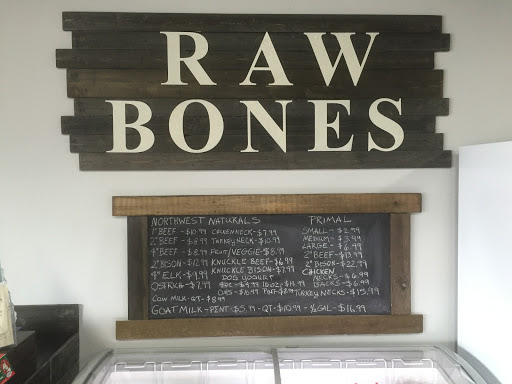 RAW
BONES
NORTHWEST NATURALS
1" BEEF - $10.99 CHICKEN NECK - $7.99
2" BEEF - $8.99 TURKEY NECK - $10.99
4" BEEF - $8.99 FRUIT/VEGGIE - $8.99
2" BISON - $12.99 KNUCKLE BEEF - $6.99
4" ELK - $9.99 KNUCKLE BISON - $7.99
OSTRICH - $7.99 DOG YOGURT
8oz - $9.99 16oz - $14.99
COW MILK - QT - $8.99
PRIMAL
SMALL - $2.99
MEDIUM - $3.99
LARGE - $6.99
2" BEEF - $13.99
2" BISON - $22.99
CHICKEN
NECKS - $6.99
BACKS - $6.99
TURKEY NECKS - $15.99
GOAT MILK - PINT - $5.99 - QT - $10.99 - ½ GAL - $16.99